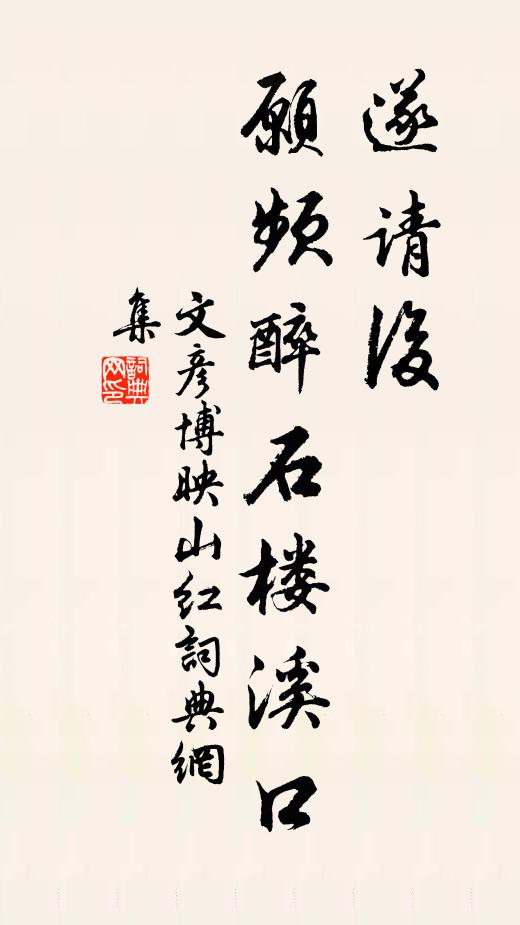 遂请后
愿频醉石楼溪口
文彦博映山红詞典網
集
詞典网印